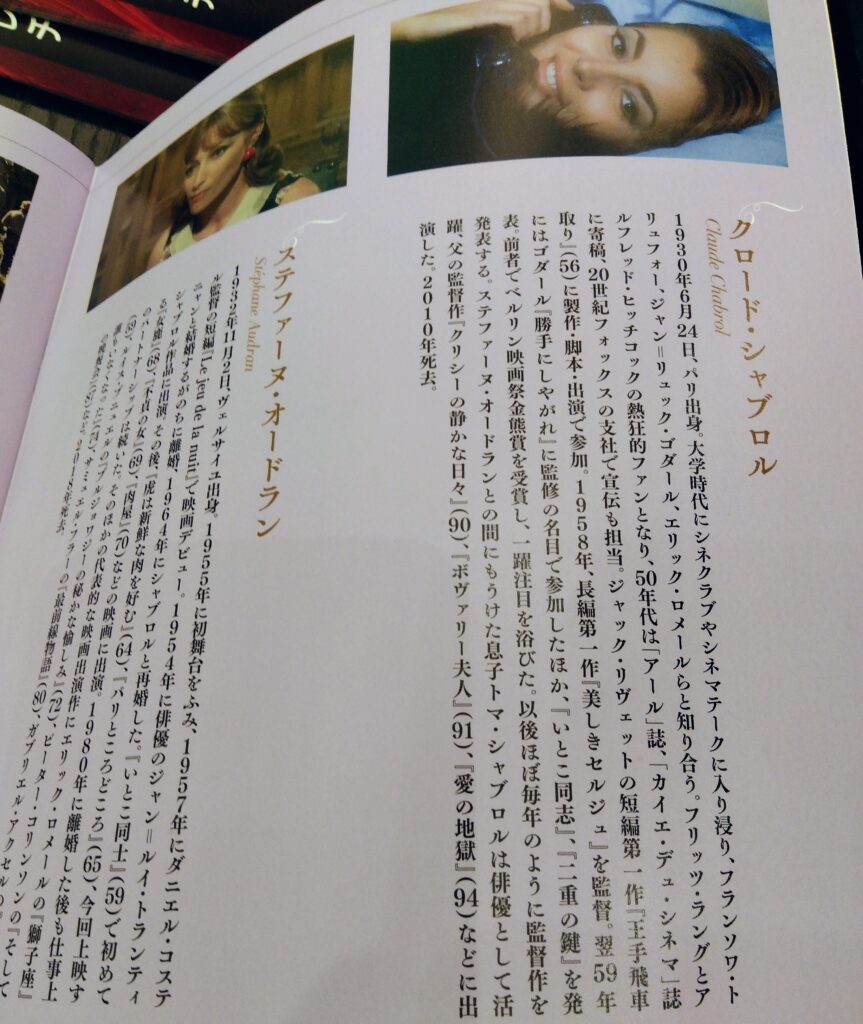 クロード・シャブロル
Claude Chabrol
1930年6月24日、パリ出身。大学時代にシネクラブやシネマテークに入り浸り、フランソワ・ト
リュフォー、ジャン=リュック・ゴダール、エリック・ロメールらと知り合う。フリッツ・ラングとア
ルフレッド・ヒッチコックの熱狂的ファンとなり、50年代は「アール」誌、「カイエ・デュ・シネマ」誌
に寄稿、20世紀フォックスの支社で宣伝も担当。ジャック・リヴェットの短編第一作『王手飛車
取り』(56)に製作・脚本・出演で参加。1958年、長編第一作『美しきセルジュ』を監督。翌59年
にはゴダール『勝手にしやがれ』に監修の名目で参加したほか、『いとこ同志』、『二重の鍵』を発
表。前者でベルリン映画祭金熊賞を受賞し、一躍注目を浴びた。以後ほぼ毎年のように監督作を
発表する。ステファーヌ・オードランとの間にもうけた息子トマ・シャブロルは俳優として活
躍、父の監督作『クリシーの静かな日々』(90)、『ボヴァリー夫人』(91)、『愛の地獄』(94)などに出
演した。2010年死去。
ステファーヌ・オードラン
Stéphane Audran
1932年11月2日、ヴェルサイユ出身。1955年に初舞台をふみ、1957年にダニエル・コステ
ル監督の短編『Le jeu de la nuit』で映画デビュー。1954年に俳優のジャン=ルイ・トランティ
ニャンと結婚するがのちに離婚、1964年にシャブロルと再婚した。『いとこ同士』(59)で初めて
シャブロル作品に出演。その後、『虎は新鮮な肉を好む』(64)、『パリところどころ』(65)、今回上映す
る『女鹿』(68)、『不貞の女』(69)、『肉屋』(70)などの映画に出演。1980年に離婚した後も仕事上
のパートナーシップは続いた。そのほかの代表的な映画出演作にエリック・ロメールの『獅子座』
(59)、ルイス・ブニュエルの『ブルジョワジーの秘かな愉しみ』(72)、ピーター・コリンソンの『そして
誰もいなくなった』(74)、サミュエル・フラーの『最前線物語』(80)、ガブリエル・アクセルの
2018年死去。